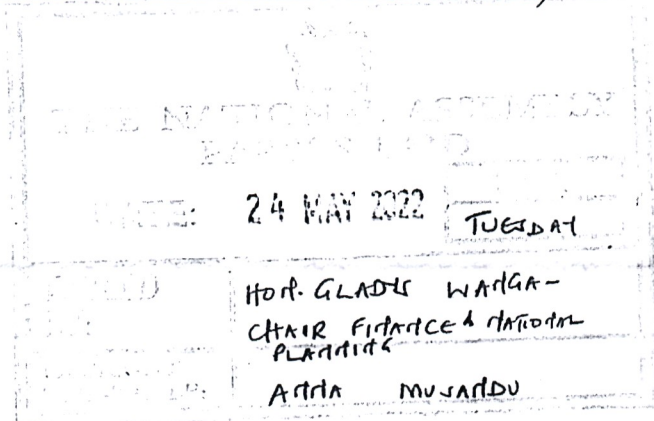 THE NATIONAL ASSEMBLY
DATE: 24 MAY 2022 TUESDAY
HON. GLADYS WANGA-
CHAIR FINANCE & NATIONAL
PLANNING
ANNA MUSANDU